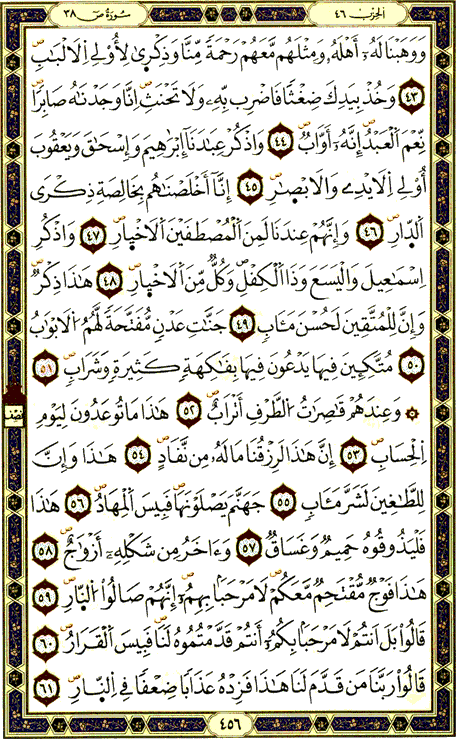 الحزب ٤٦
سورة ص ٣٨
وَوَهَبْنَا لَهُۥٓ أَهْلَهُۥ وَمِثْلَهُم مَّعَهُمْ رَحْمَةً مِّنَّا وَذِكْرِىٰ لِأُوْلِے اِ۬لَالْبَٰبِ
٤٣ وَخُذْ بِيَدِكَ ضِغْثاً فَاضْرِب بِّهِۦ وَلَا تَحْنَثِ اِنَّا وَجَدْنَٰهُ صَابِراً
نِّعْمَ اَ۬لْعَبْدُ إِنَّهُۥٓ أَوَّابٌ ٤٤ وَاذْكُرْ عِبَٰدَنَآ إِبْرَٰهِيمَ وَإِسْحَٰقَ وَيَعْقُوبَ
أُوْلِے اِ۬لَايْدِے وَالَابْصٰ۪رِ ٤٥ إِنَّآ أَخْلَصْنَٰهُم بِخَالِصَةِ ذِكْرَى
اَ۬لدّ۪ارِ ٤٦ وَإِنَّهُمْ عِندَنَا لَمِنَ اَ۬لْمُصْطَفَيْنَ اَ۬لَاخْي۪ارِ ٤٧ وَاذْكُرِ
اِسْمَٰعِيلَ وَالْيَسَعَ وَذَا اَ۬لْكِفْلِ وَكُلٌّ مِّنَ اَ۬لَاخْي۪ارِ ٤٨ هَٰذَا ذِكْرٌ
وَإِنَّ لِلْمُتَّقِينَ لَحُسْنَ مَـَٔابٍ ٤٩ جَنَّٰتِ عَدْنٍ مُّفَتَّحَةً لَّهُمُ اُ۬لَابْوَٰبُ
٥٠ مُتَّكِـِٕينَ فِيهَا يَدْعُونَ فِيهَا بِفَٰكِهَةٍ كَثِيرَةٍ وَشَرَابٍ ٥١
۞ وَعِندَهُمْ قَٰصِرَٰتُ اُ۬لطَّرْفِ أَتْرَابٌ ٥٢ هَٰذَا مَا تُوعَدُونَ لِيَوْمِ
نصف
اِ۬لْحِسَابِ ٥٣ إِنَّ هَٰذَا لَرِزْقُنَا مَا لَهُۥ مِن نَّفَادٍ ٥٤ هَٰذَا وَإِنَّ
لِلطَّٰغِينَ لَشَرَّ مَـَٔابٍ ٥٥ جَهَنَّمَ يَصْلَوْنَهَا فَبِيسَ اَ۬لْمِهَادُ ٥٦ هَٰذَا
فَلْيَذُوقُوهُ حَمِيمٌ وَغَسَاقٌ ٥٧ وَءَاخَرُ مِن شَكْلِهِۦٓ أَزْوَٰجٌ ٥٨
هَٰذَا فَوْجٌ مُّقْتَحِمٌ مَّعَكُمْ لَا مَرْحَباً بِهِمُۥٓ إِنَّهُمْ صَالُواْ اُ۬لنّ۪ارِ ٥٩
قَالُواْ بَلَ اَنتُمْ لَا مَرْحَباً بِكُمُۥٓ أَنتُمْ قَدَّمْتُمُوهُ لَنَا فَبِيسَ اَ۬لْقَرَارُ ٦٠
قَالُواْ رَبَّنَا مَن قَدَّمَ لَنَا هَٰذَا فَزِدْهُ عَذَاباً ضِعْفاً فِے اِ۬لنّ۪ارِ ٦١
٤٥٦